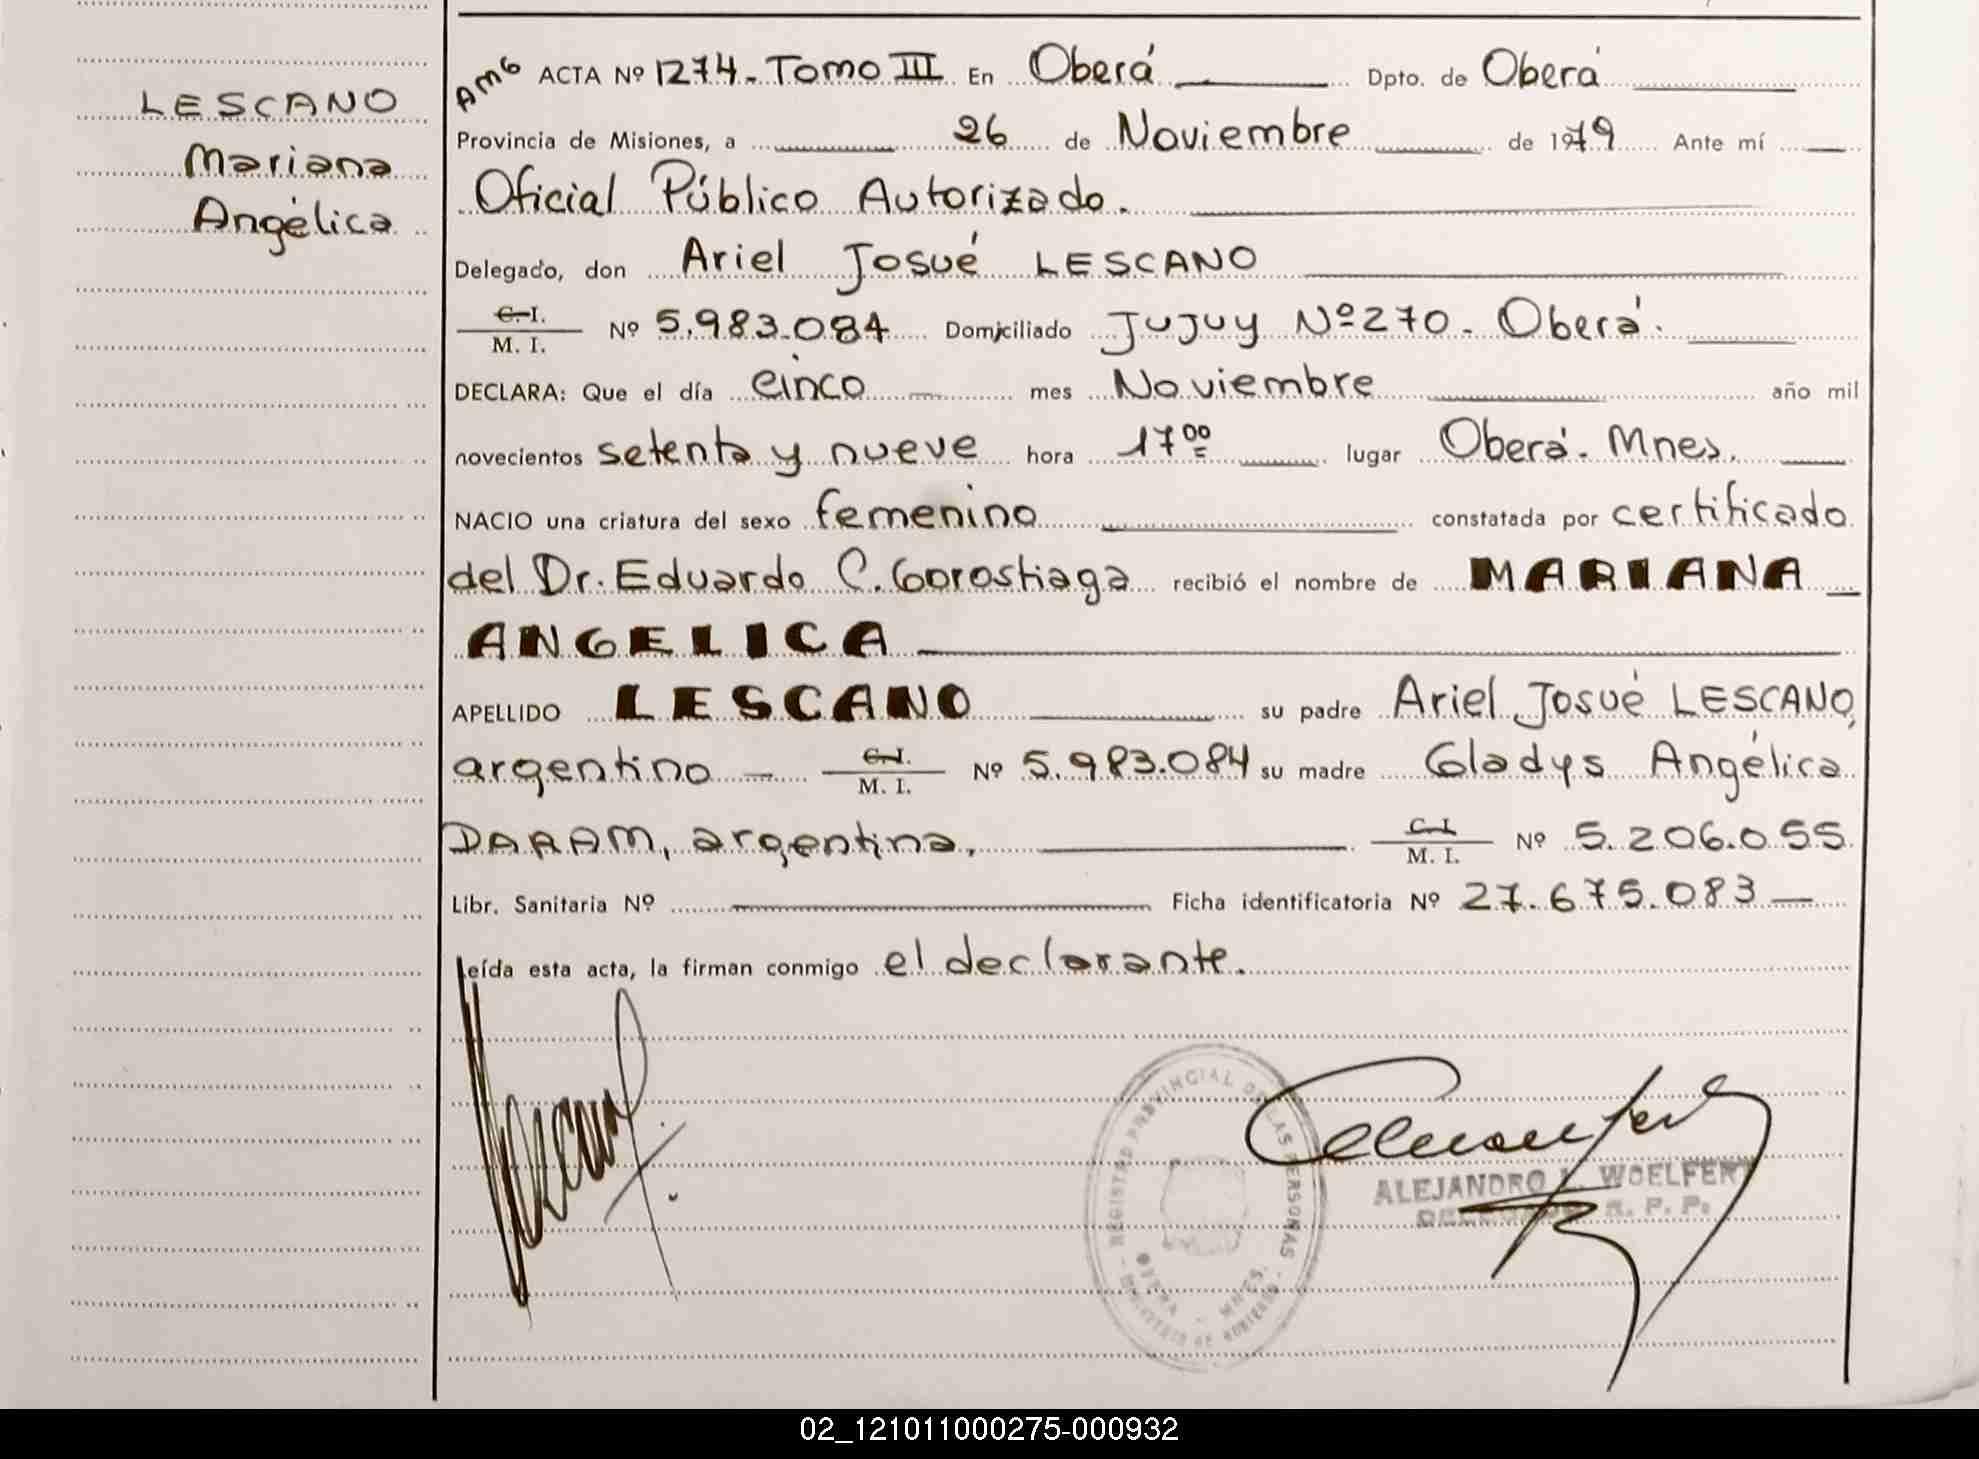 LESCANO
Mariana
Angélica
AMG ACTA Nº 1274. Tomo III En Oberá Dpto. de Oberá
Provincia de Misiones, a 26 de Noviembre de 1979 Ante mí
Oficial Público Autorizado.
Delegado, don Ariel Josué LESCANO
C. I. / M. I. Nº 5.983.084 Domiciliado Jujuy Nº 270. Oberá.
DECLARA: Que el día cinco mes Noviembre año mil
novecientos setenta y nueve hora 17 00 lugar Oberá. Mnes.
NACIO una criatura del sexo femenino constatada por certificado
del Dr. Eduardo C. Gorostiaga recibió el nombre de MARIANA
ANGELICA
APELLIDO LESCANO su padre Ariel Josué LESCANO,
argentino C. I. / M. I. Nº 5.983.084 su madre Gladys Angélica
DARAM, argentina. C. I. / M. I. Nº 5.206.055
Libr. Sanitaria Nº Ficha identificatoria Nº 27.675.083
Leída esta acta, la firman conmigo el declarante.
REGISTRO PROVINCIAL DE LAS PERSONAS
OBERA - MNES.
MINISTERIO DE GOBIERNO
ALEJANDRO L. WOELFERT
DELEGADO R. P. P.
02_121011000275-000932